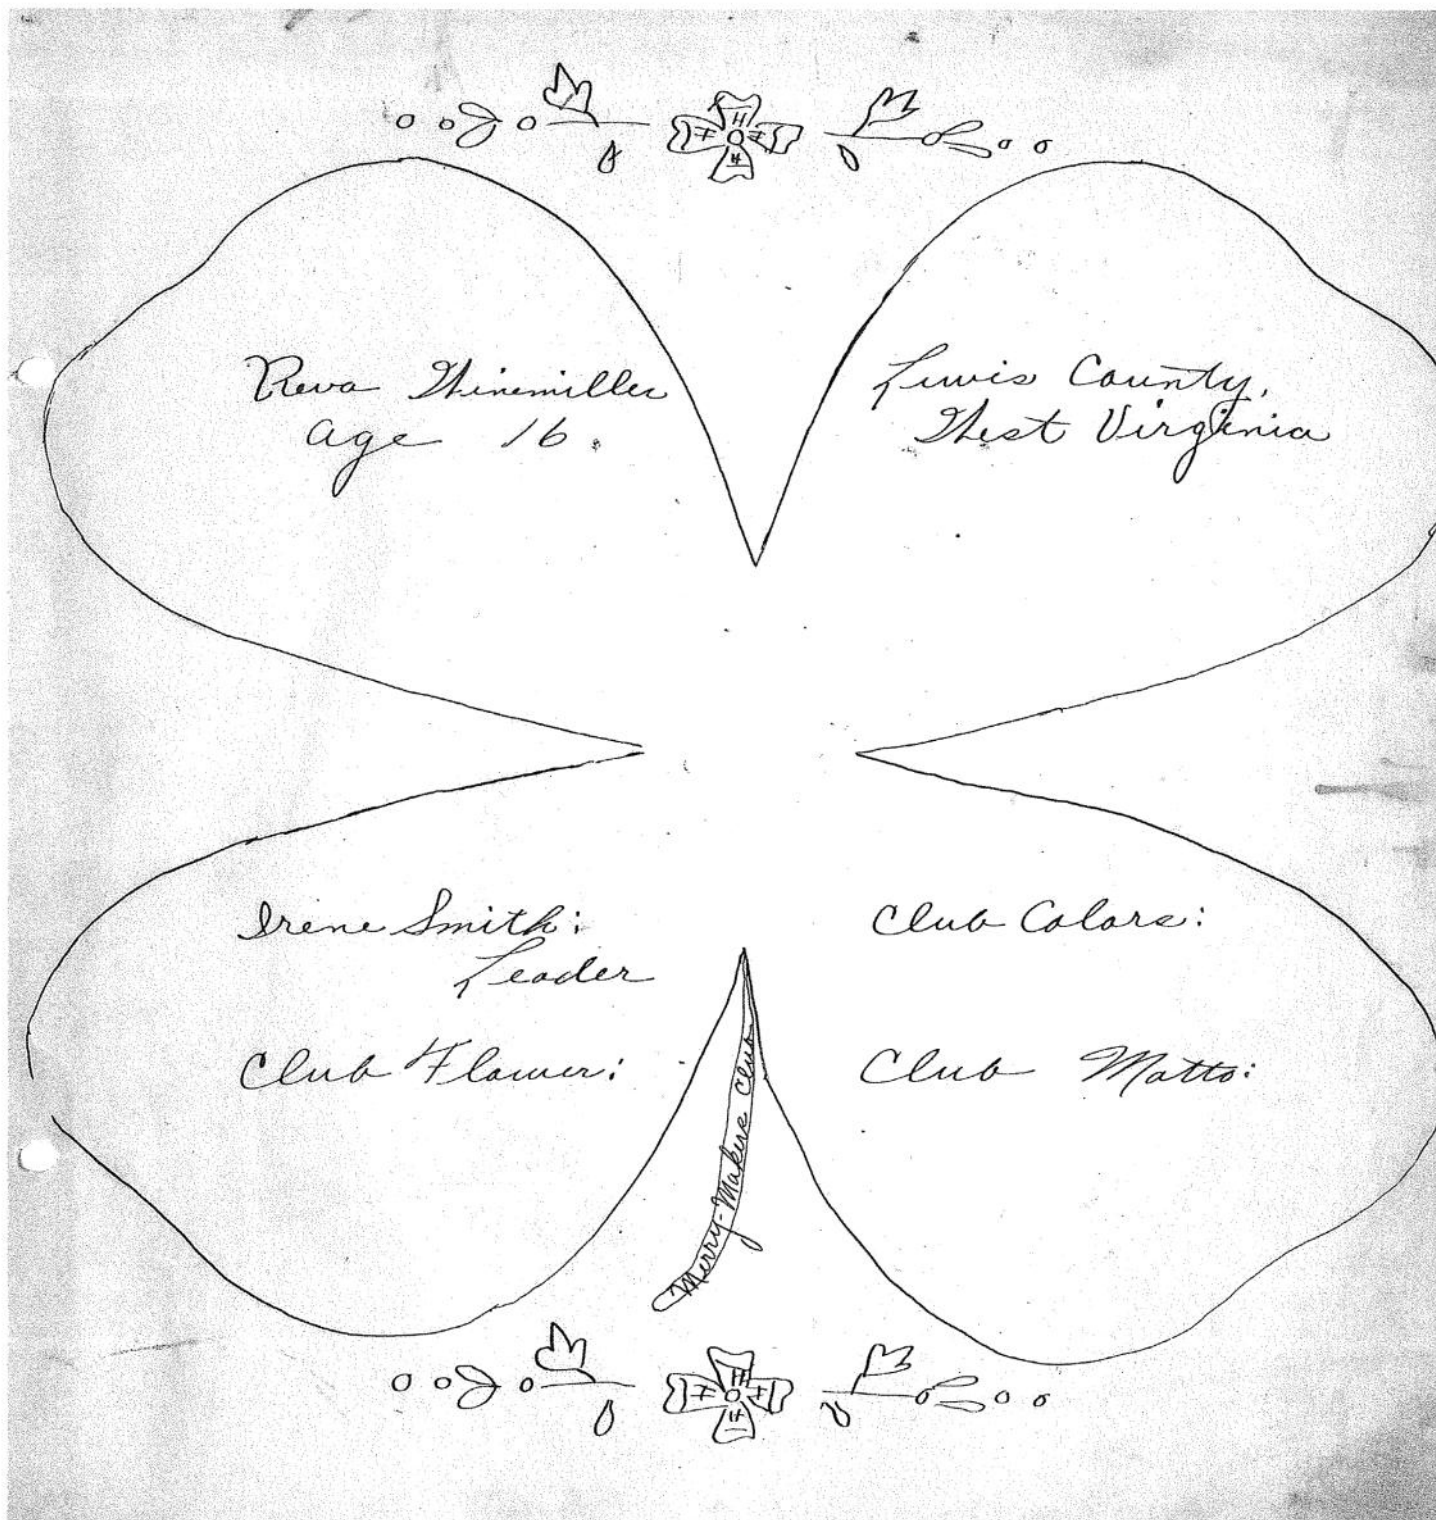 H
H H
H
Reva Winemiller
age 16.
Lewis County,
West Virginia
Irene Smith:
Leader
Club Colors:
Club Flower:
Club Motto:
Merry-Makers Club
H
H H
H